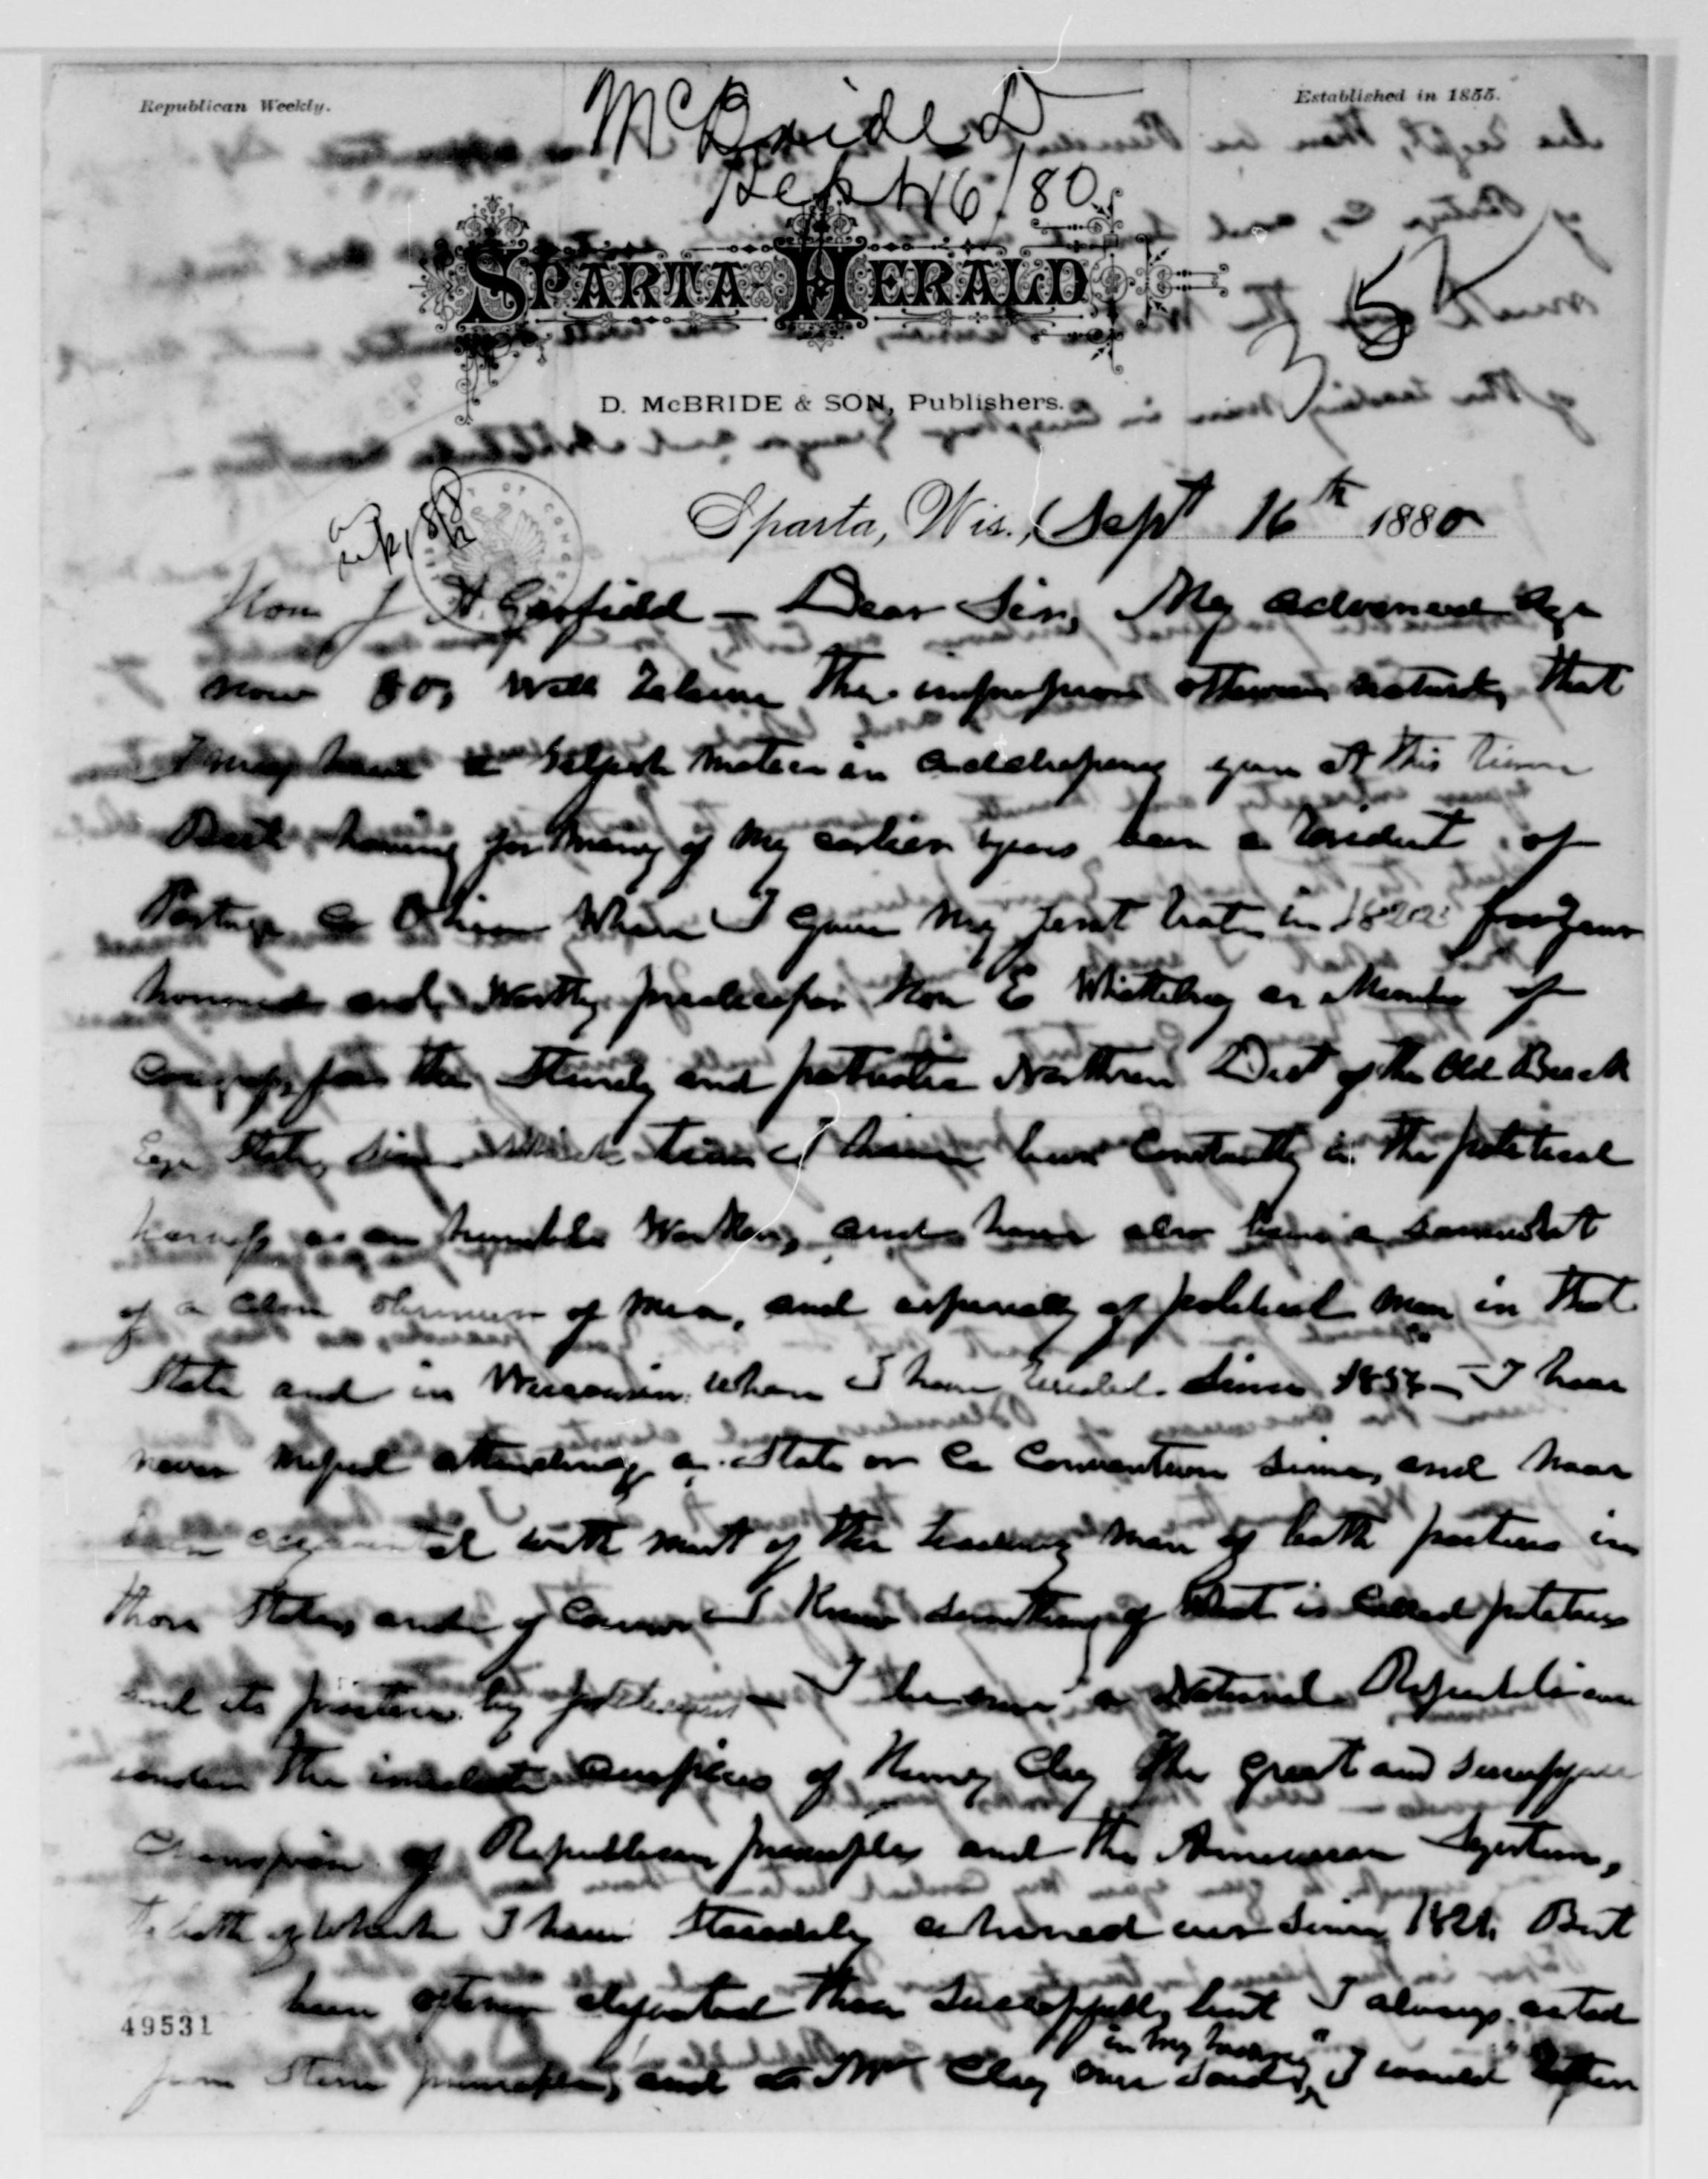 Republican Weekly.
Established in 1855.
McBride D
Sept 16/80
SPARTA HERALD
D. McBRIDE & SON, Publishers.
Sparta, Wis., Sept 16th 1880
Hon J A. Garfield — Dear Sir, My advanced age
now 80, will relieve the impression otherwise natural, that
I may have a selfish motive in addressing you at this time
But having for many of my earlier years been a resident of
Portage Co Ohio where I gave my first vote in 1822 for your
honored and worthy predecessor Hon E Whittlesey as Member of
Congress for the sturdy and patriotic Northern Dist of the Old Buck
Eye State, since which time I have been constantly in the political
harness as an humble worker, and have also been a somewhat
of a close observer of men, and especially of political men in that
State and in Wisconsin where I have resided since — I have
never missed attending a State or Co Convention since, and have
been acquainted with most of the leading men of both parties in
those States, and of course I know something of what is called politics
and its practice by politicians — I became a National Republican
under the auspices of Henry Clay the great and
Champion of Republican principles and the American System,
To both of which I have steadily adhered ever since But
been oftener defeated than successful, but I always acted
from principle, and as Mr Clay once said "in my hearing" I would rather
49531